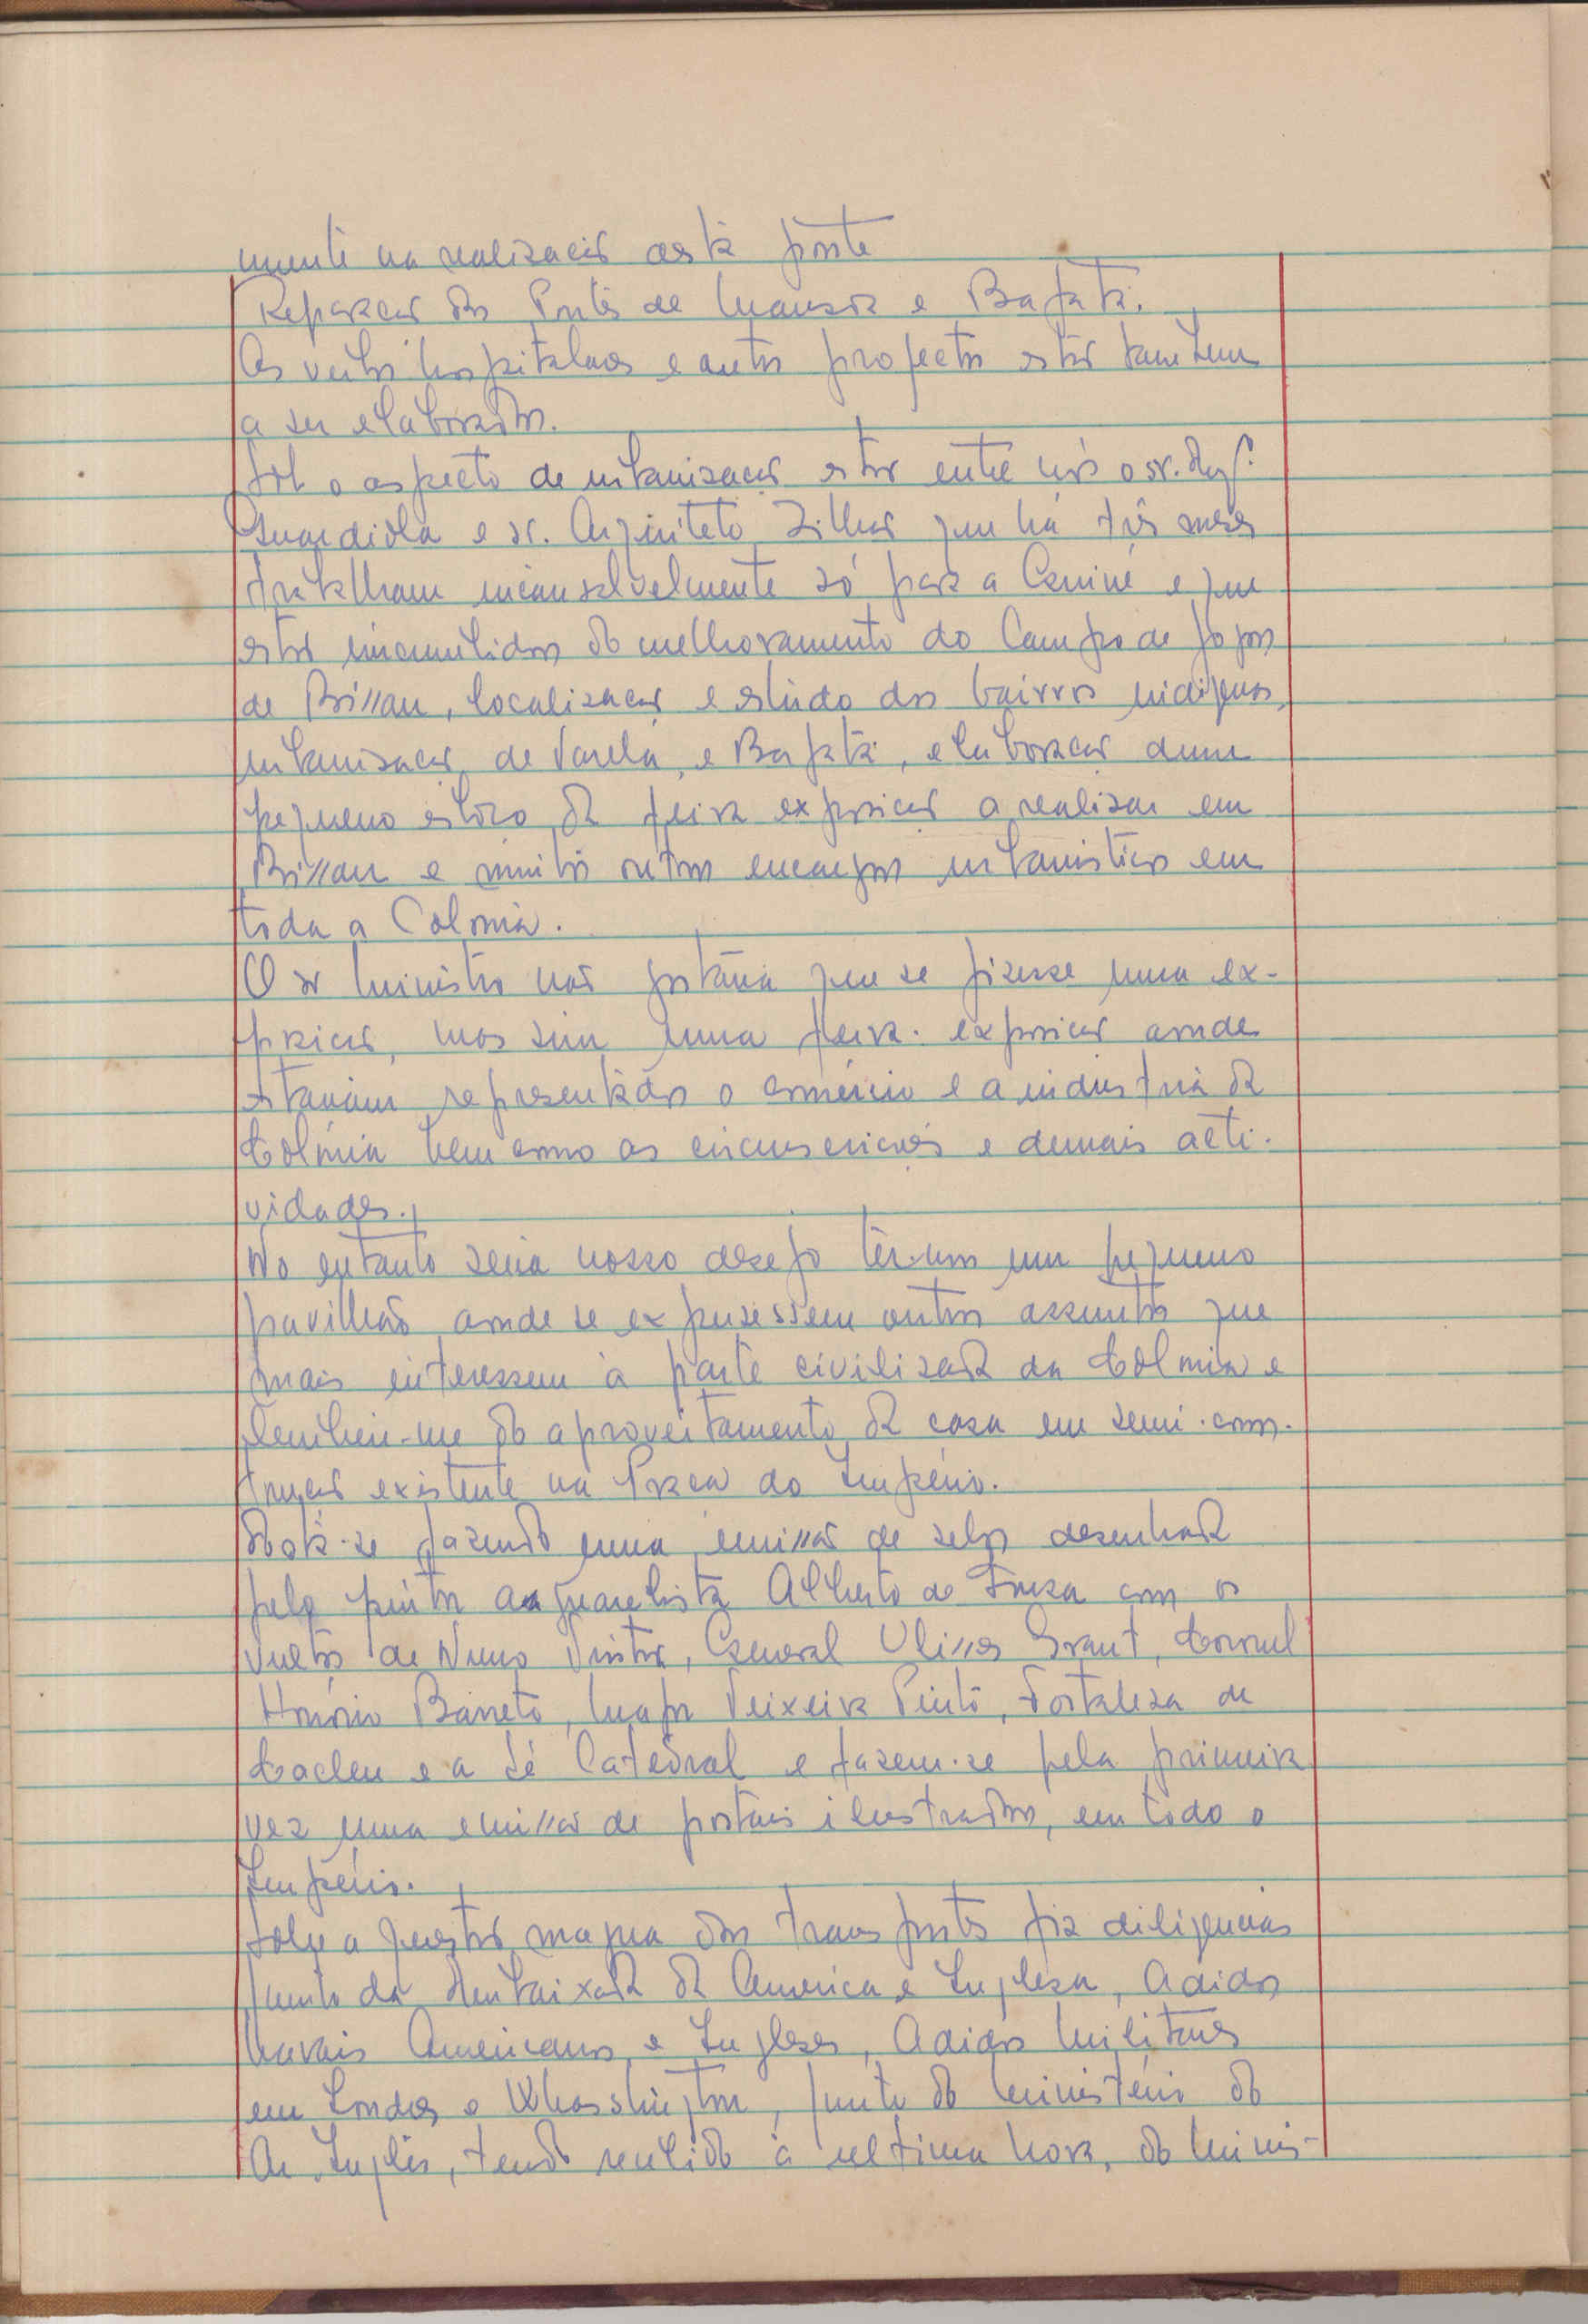 mente na realização desta ponte
Reparação das Pontes de Mansoa e Bafatá.
As verbas hospitalares e outros projectos estão tambem
a ser elaborados.
Sob o aspecto de urbanização estão entre nós o sr. Engº
Guardiola e sr. Arquiteto Zilhão que há três meses
trabalham incansalvelmente só para a Guiné e que
estão incumbidos do melhoramento do Campo de Jogos
de Bissau, localização e estudo dos bairros indigenas,
urbanização de Varela, e Bafatá, elaboração dum
pequeno esboço da feira exposição a realisar em
Bissau e muitos outros encargos urbanisticos em
toda a Colonia.
O sr Ministro não gostaria que se fizesse uma ex-
posição, mas sim uma feira-exposição aonde
estariam representados o comércio e a industria da
Colónia bem como as circunscrições e demais acti-
vidades.
No entanto seria nosso desejo ter-mos um pequeno
pavilhão aonde se expusessem outros assuntos que
mais interessem à parte civilizada da Colonia e
lembrei-me do aproveitamento da casa em semi-cons-
trução existente na Praça do Império.
Está-se fazendo uma emissão de selos desenhada
pelo pintor aquarelista Alberto de Souza com os
vultos de Nuno Tristão, General Ulisses Grant, Coronel
Honório Barreto, Major Teixeira Pinto, Fortaleza de
Cacheu e a Sé Catedral e fazem-se pela primeira
vez uma emissão de postais ilustrados, em todo o
Império.
Sobre a questão magna dos transportes fiz diligencias
junto da Embaixada da America e Inglesa, Adidos
Navais Americanos e Ingleses, Adidos Militares
em Londres e Whasshington, junto do Ministério do
Ar Inglês, tendo recebido à ultima hora, do Minis-